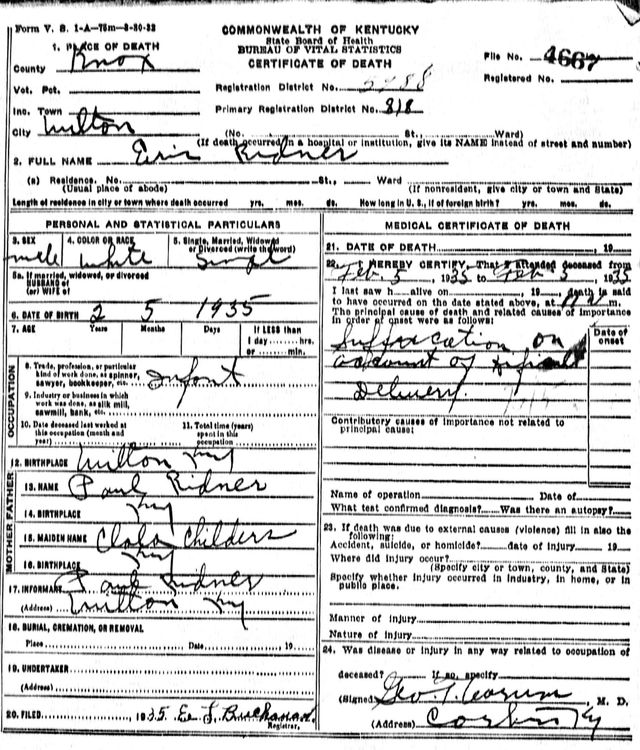 Form V. S. 1-A-75m-3-30-32
COMMONWEALTH OF KENTUCKY
State Board of Health
BUREAU OF VITAL STATISTICS
CERTIFICATE OF DEATH
1. PLACE OF DEATH
County Knox
Vot. Pct.
Inc. Town
City Wilton
File No. 4667
Registered No.
Registration District No. 5988
Primary Registration District No. 818
(No. St., Ward)
(If death occurred in a hospital or institution, give its NAME instead of street and number)
2. FULL NAME Ridner
(a) Residence. No. St., Ward
(Usual place of abode) (If nonresident, give city or town and State)
Length of residence in city or town where death occurred yrs. mos. ds. How long in U. S., if of foreign birth? yrs. mos. ds.
PERSONAL AND STATISTICAL PARTICULARS
3. SEX male
4. COLOR OR RACE white
5. Single, Married, Widowed or Divorced (write the word) Single
5a. If married, widowed, or divorced
HUSBAND of
(or) WIFE of
6. DATE OF BIRTH 2 5 1935
7. AGE Years Months Days If LESS than
1 day hrs.
or min.
OCCUPATION
8. Trade, profession, or particular
kind of work done, as spinner,
sawyer, bookkeeper, etc. Infant
9. Industry or business in which
work was done, as silk mill,
sawmill, bank, etc.
10. Date deceased last worked at
this occupation (month and
year)
11. Total time (years)
spent in this
occupation
12. BIRTHPLACE Wilton Ky
FATHER
13. NAME Paul Ridner
14. BIRTHPLACE Ky
MOTHER
15. MAIDEN NAME Childers
16. BIRTHPLACE Ky
17. INFORMANT Paul Ridner
(Address) Wilton Ky
18. BURIAL, CREMATION, OR REMOVAL
Place Date 19
19. UNDERTAKER
(Address)
20. FILED 1935 Buchanan
Registrar.
MEDICAL CERTIFICATE OF DEATH
21. DATE OF DEATH 19
22. I HEREBY CERTIFY, That I attended deceased from
Feb 5, 1935 to Feb 5, 1935
I last saw h alive on 19 death is said
to have occurred on the date stated above, at m.
The principal cause of death and related causes of importance
in order of onset were as follows:
Date of onset
Suffocation on
account of
Delivery
Contributory causes of importance not related to
principal cause:
Name of operation Date of
What test confirmed diagnosis? Was there an autopsy?
23. If death was due to external causes (violence) fill in also the
following:
Accident, suicide, or homicide? date of injury 19
Where did injury occur?
(Specify city or town, county, and State)
Specify whether injury occurred in industry, in home, or in
public place.
Manner of injury
Nature of injury
24. Was disease or injury in any way related to occupation of
deceased? If so, specify
(Signed) Geo. T. M. D.
(Address) Corbin Ky